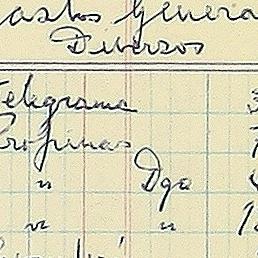 Gastos Genera
Diversos
Telegrama 3
Propinas 7
" Dgo
" " 1